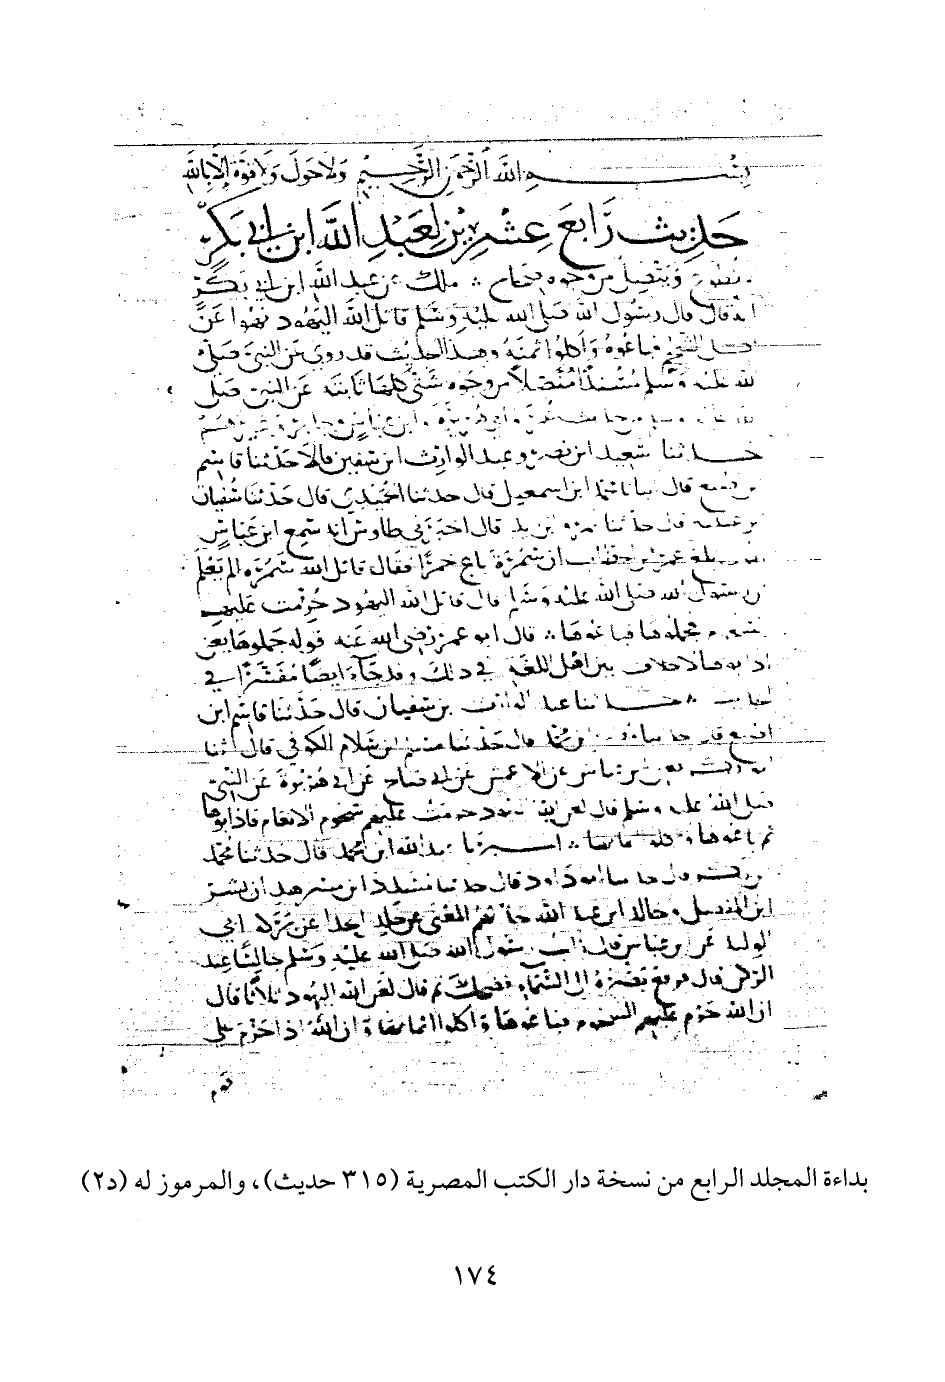 بسم الله الرحمن الرحيم ولا حول ولا قوة الا بالله
حديث رابع عشرين لعبد الله ابن ابي بكر
ويتصل من وجوه صحاح ملك عن عبد الله ابن ابي بكر
انه قال قال رسول الله صلى الله عليه وسلم قاتل الله اليهود نهوا عن
اكل الشحم فباعوه واكلوا ثمنه وهذا الحديث قد روي عن النبي صلى
الله عليه وسلم مسندا متصلا من وجوه شتى كلها ثابتة عن النبي صلى
الله عليه وسلم من حديث عمر وابي هريرة وابن عباس وجابر وغيرهم
حدثنا سعيد ابن نصر وعبد الوارث ابن سفين قالا حدثنا قاسم
بن اصبغ قال ابن اسمعيل قال حدثنا الحميدي قال حدثنا سفيان
قال حدثنا عمرو بن دينار قال اخبرني طاوس انه سمع ابن عباس
بلغ عمر بن الخطاب ان سمرة باع خمرا فقال قاتل الله سمرة الم يعلم
ان رسول الله صلى الله عليه وسلم قال قاتل الله اليهود حرمت عليهم
الشحوم فجملوها فباعوها قال ابو عمر رضي الله عنه قوله جملوها يعني
اذابوها لا خلاف بين اهل اللغة في ذلك وقد جاء ايضا مفسرا في
الحديث حدثنا عبد الوارث بن سفيان قال حدثنا قاسم ابن
اصبغ قال حدثنا محمد قال حدثنا ابن سلام الكوفي قال ثنا
ابو بكر بن عياش عن الاعمش عن ابي صالح عن ابي هريرة عن النبي
صلى الله عليه وسلم قال لعن الله اليهود حرمت عليهم شحوم الانعام فاذابوها
ثم باعوها واكلوا اثمانها اخبرنا عبد الله ابن محمد قال حدثنا محمد
بن بكر قال حدثنا ابو داود قال حدثنا مسدد ابن مسرهد ان بشر
ابن المفضل وخالد ابن عبد الله حدثاهم المعنى عن خالد الحذا عن بركة ابي
الوليد عن ابن عباس قال رايت رسول الله صلى الله عليه وسلم جالسا عند
الركن قال فرفع بصره الى السماء فضحك ثم قال لعن الله اليهود ثلاثا قال
ان الله حرم عليهم الشحوم فباعوها واكلوا اثمانها وان الله اذا حرم على
قوم
بداءة المجلد الرابع من نسخة دار الكتب المصرية (٣١٥ حديث)، والمرموز له (د٢)
١٧٤